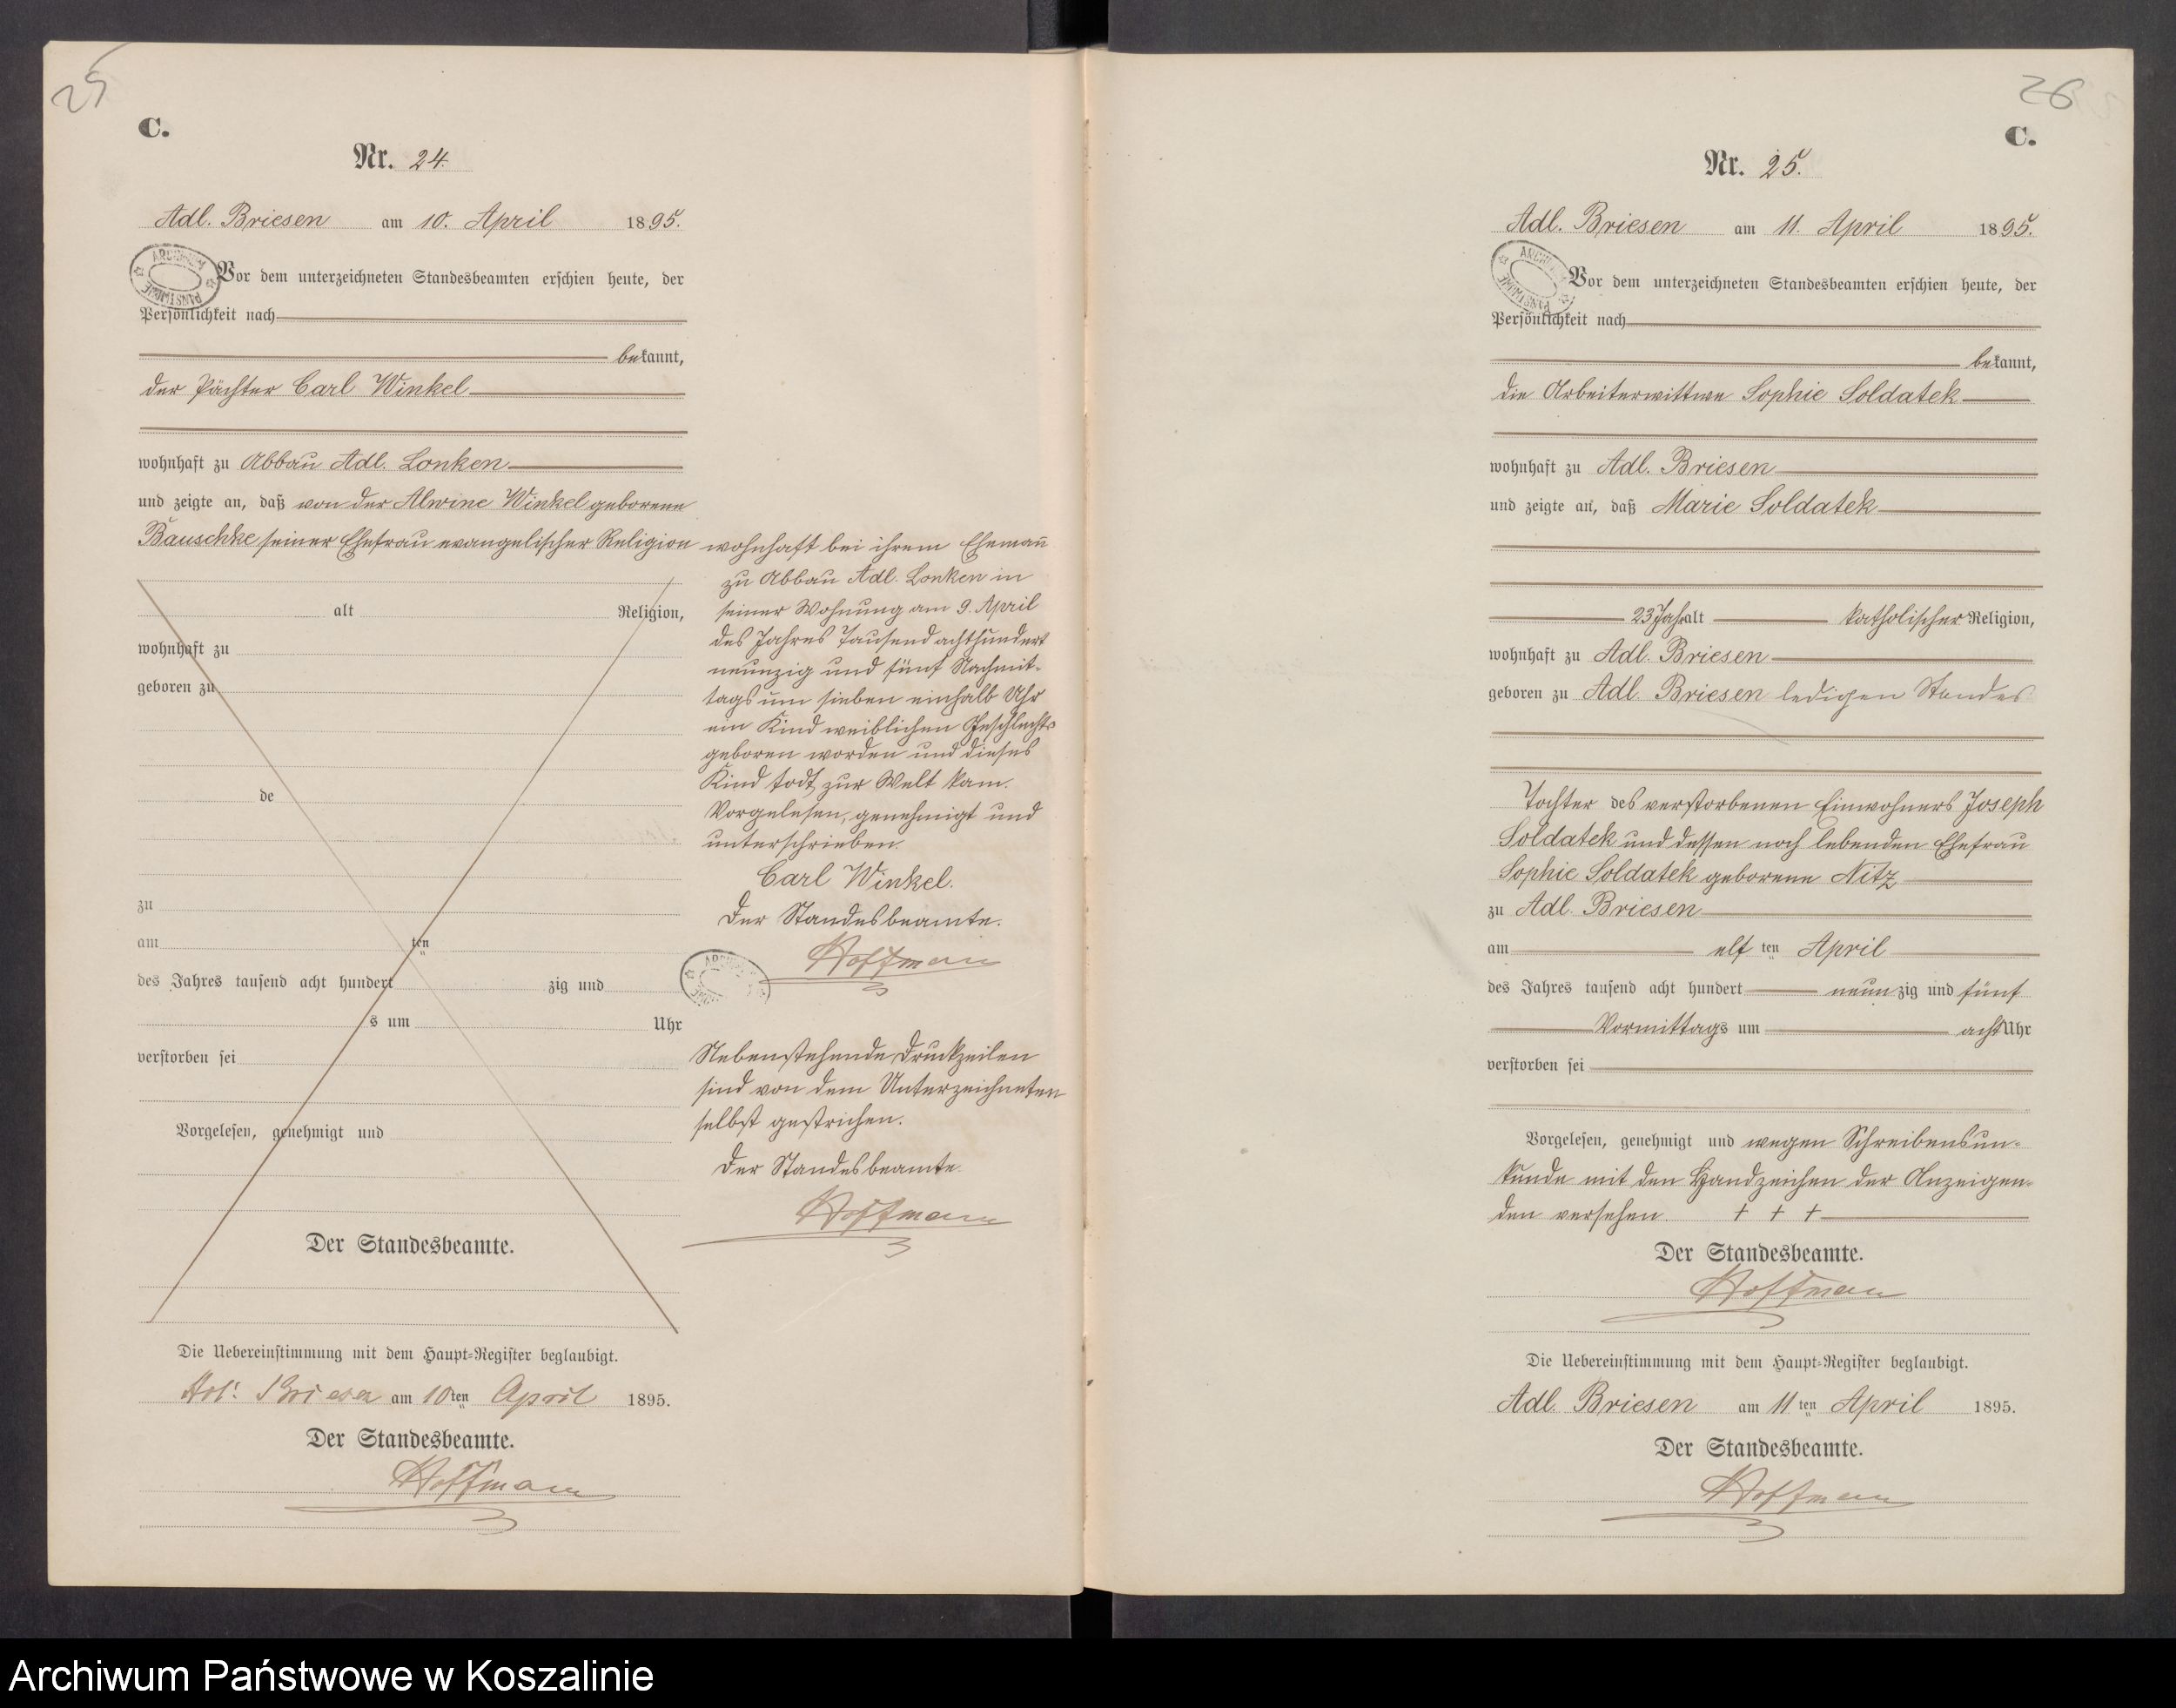 25
C.
Nr. 24.
Adl. Briesen am 10. April 1895.
Vor dem unterzeichneten Standesbeamten erschien heute, der
Persönlichkeit nach
bekannt,
der Pächter Carl Winkel
wohnhaft zu Abbau Adl. Lonken
und zeigte an, daß von der Alwine Winkel geborene
Bauschke seiner Ehefrau evangelischer Religion wohnhaft bei ihrem Ehemañ
zu Abbau Adl. Lonken in
seiner Wohnung am 9. April
des Jahres Tausend achthundert
neunzig und fünf Nachmit-
tags um sieben einhalb Uhr
ein Kind weiblichen Geschlechts
geboren worden und dieses
Kind todt zur Welt kam.
Vorgelesen, genehmigt und
unterschrieben.
Carl Winkel.
Der Standesbeamte.
Hoffmann
alt Religion,
wohnhaft zu
geboren zu
de
zu
am ten
des Jahres tausend acht hundert zig und
s um Uhr
verstorben sei
Vorgelesen, genehmigt und
Der Standesbeamte.
Nebenstehende Druckzeilen
sind von dem Unterzeichneten
selbst gestrichen.
Der Standesbeamte.
Hoffmann
Die Uebereinstimmung mit dem Haupt-Register beglaubigt.
Adl. Briesen am 10ten April 1895.
Der Standesbeamte.
Hoffmann
26
C.
Nr. 25.
Adl. Briesen am 11. April 1895.
ARCHIWUM PAŃSTWOWE
Vor dem unterzeichneten Standesbeamten erschien heute, der
Persönlichkeit nach
bekannt,
die Arbeiterwittwe Sophie Soldatek
wohnhaft zu Adl. Briesen
und zeigte an, daß Marie Soldatek
23 Jahr alt katholischer Religion,
wohnhaft zu Adl. Briesen
geboren zu Adl. Briesen ledigen Standes
Tochter des verstorbenen Einwohners Joseph
Soldatek und dessen noch lebenden Ehefrau
Sophie Soldatek geborene Nitz
zu Adl. Briesen
am elf ten April
des Jahres tausend acht hundert neunzig und fünf
Vormittags um acht Uhr
verstorben sei
Vorgelesen, genehmigt und wegen Schreibensun-
kunde mit den Handzeichen der Anzeigen-
den versehen. + + +
Der Standesbeamte.
Hoffmann
Die Uebereinstimmung mit dem Haupt-Register beglaubigt.
Adl. Briesen am 11ten April 1895.
Der Standesbeamte.
Hoffmann
Archiwum Państwowe w Koszalinie